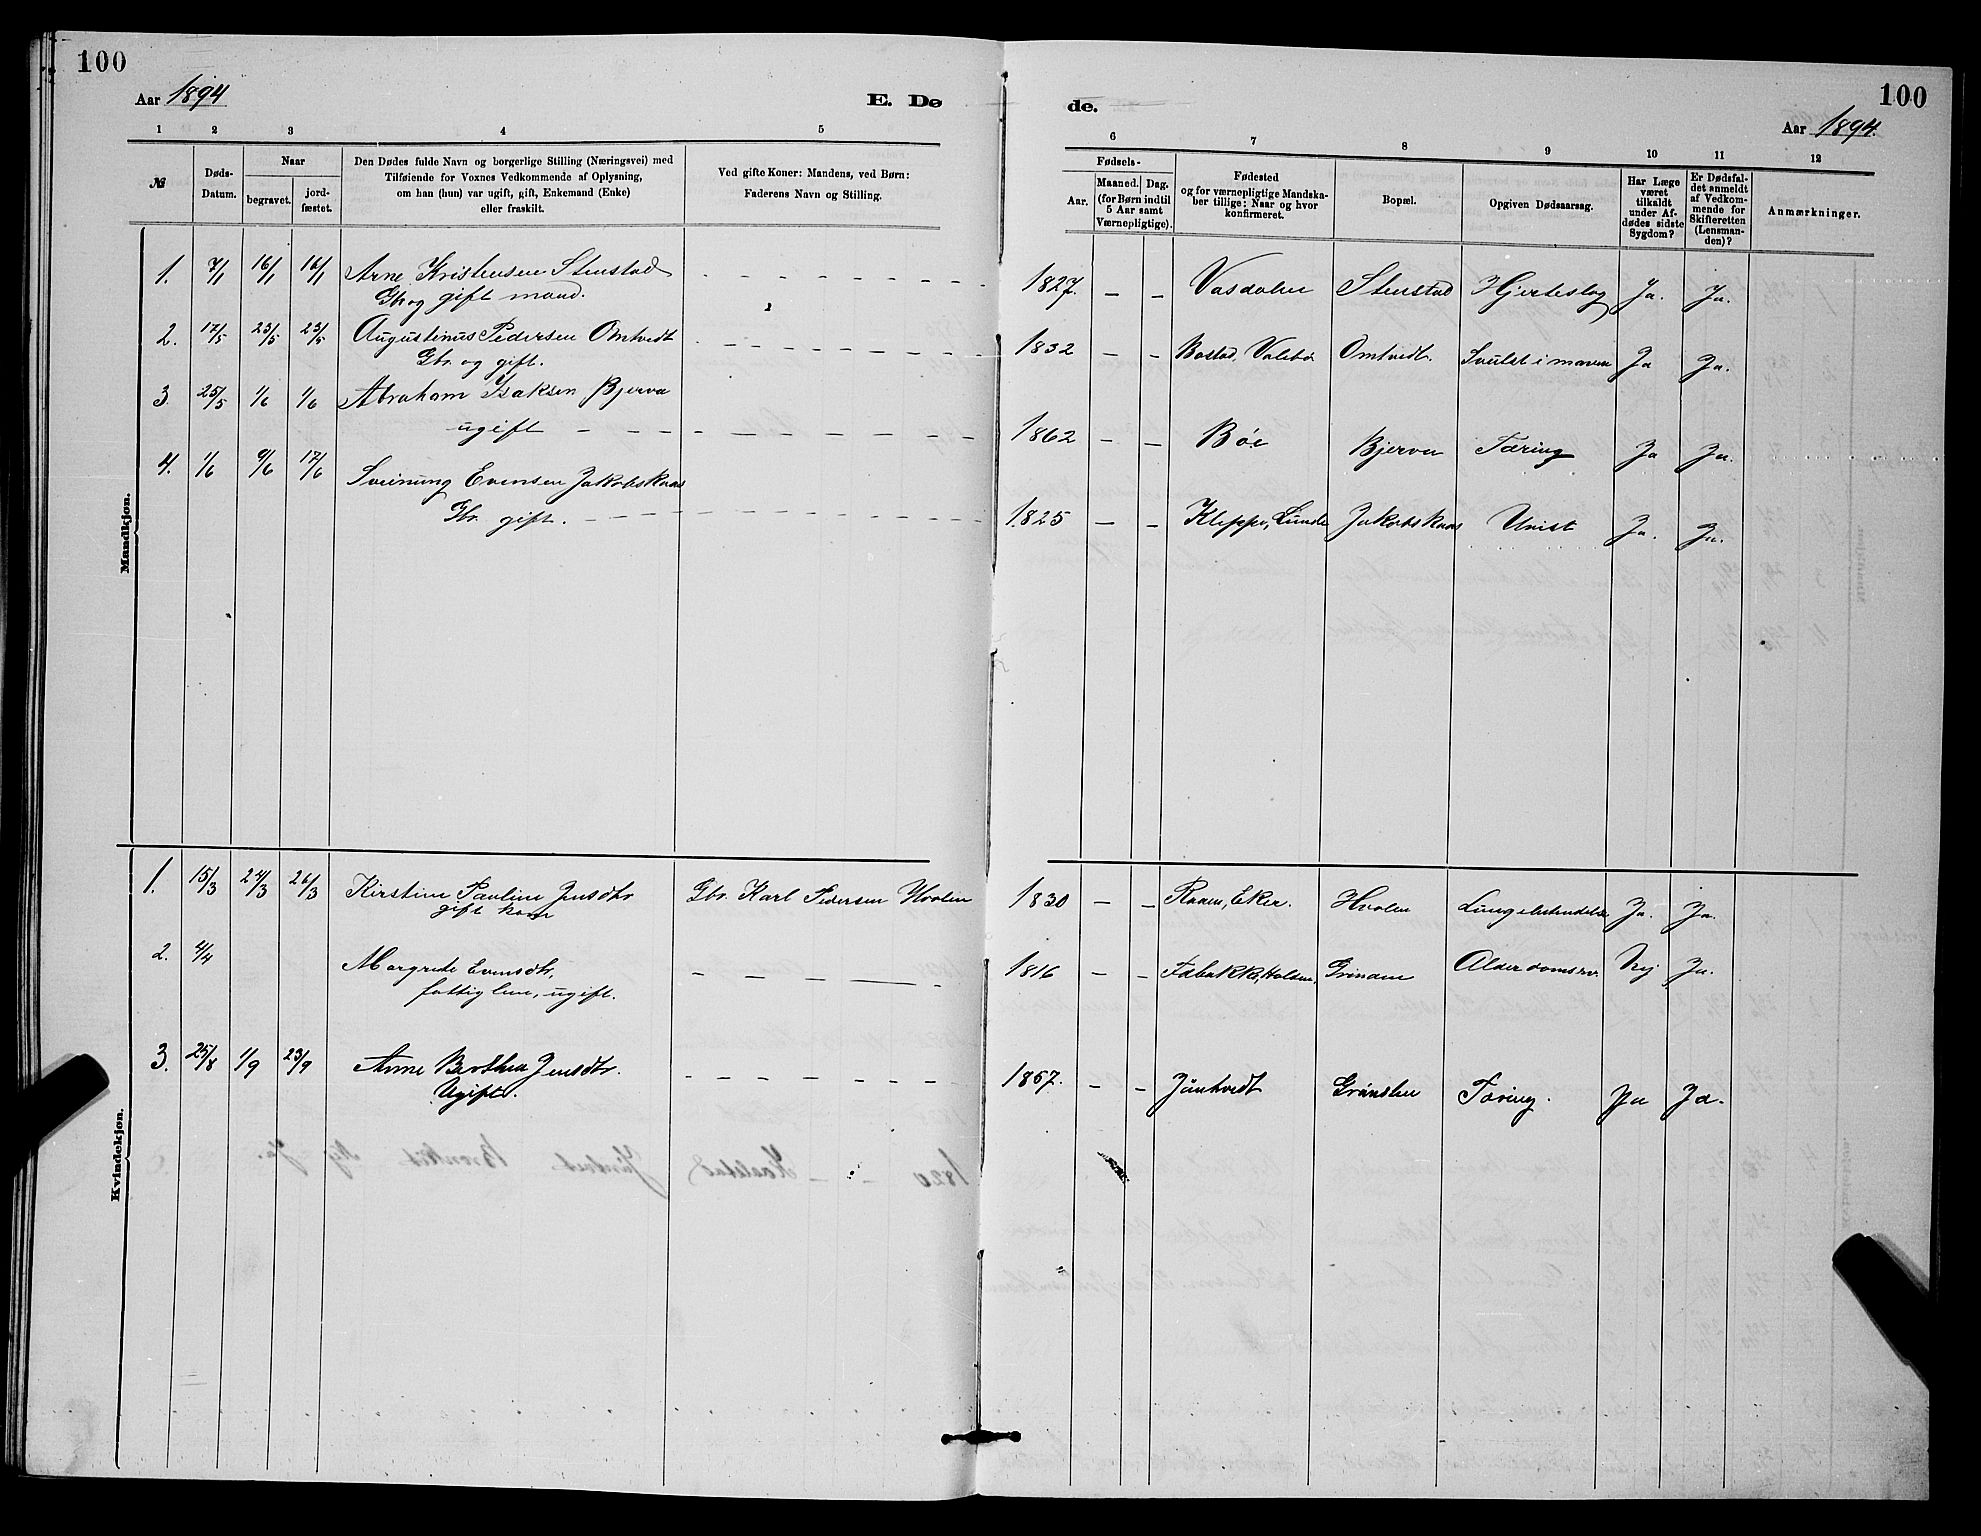 100
Aar 1894
E. Dø
1 2 3 4 5
№
Døds-Datum.
Naar
begravet.
jord-fæstet.
Den Dødes fulde Navn og borgerlige Stilling (Næringsvei) med
Tilføiende for Voxnes Vedkommende af Oplysning,
om han (hun) var ugift, gift, Enkemand (Enke)
eller fraskilt.
Ved gifte Koner: Mandens, ved Børn:
Faderens Navn og Stilling.
Mandkjøn.
1. 7/1 16/1 16/1 Arne Kristensen Stenstad
Gbr og gift mand.
2. 17/5 23/5 23/5 Augustinus Pedersen Omtvedt
Gbr. og gift.
3. 25/5 1/6 1/6 Abraham Isaksen Bjerva
ugift
4. 1/6 9/6 17/6 Sveinung Evensen Jakobskaas
Gbr. gift.
Kvindekjøn.
1. 15/3 24/3 26/3 Kirstine Pauline Jensdtr Gbr. Karl Pedersen Hvalen
gift kone
2. 4/4 Margrete Evensdtr,
fattiglem, ugift.
3. 25/8 1/9 23/9 Anne Berthea Jensdtr.
Ugift.
100
de.
Aar 1894.
6 7 8 9 10 11 12
Fødsels-
Aar.
Maaned. Dag.
(for Børn indtil
5 Aar samt
Værnepligtige).
Fødested
og for værnepligtige Mandska-
ber tillige: Naar og hvor
konfirmeret.
Bopæl.
Opgiven Dødsaarsag.
Har Læge
været
tilkaldt
under Af-
dødes sidste
Sygdom?
Er Dødsfal-
det anmeldt
af Vedkom-
mende for
Skifteretten
(Lensman-
den)?
Anmærkninger.
1827. – – Vasdalen Stenstad Hjerteslag Ja. Ja.
1832 – – Bostad, Valebø Omtvedt. Svulst i maven Ja Ja.
1862 – – Bøe Bjerva Tæring Ja Ja.
1825 – – Kleppe, Lunde Jakobskaas Uvist Ja. Ja.
1830 – – Raaen, Eker. Hvalen Lungebetændelse Ja. Ja.
1816 – – Fæbakke, Holden, Grinden Alderdomssv. Nej Ja.
1867. – – Jüntvedt Grönslen Tæring. Ja Ja.